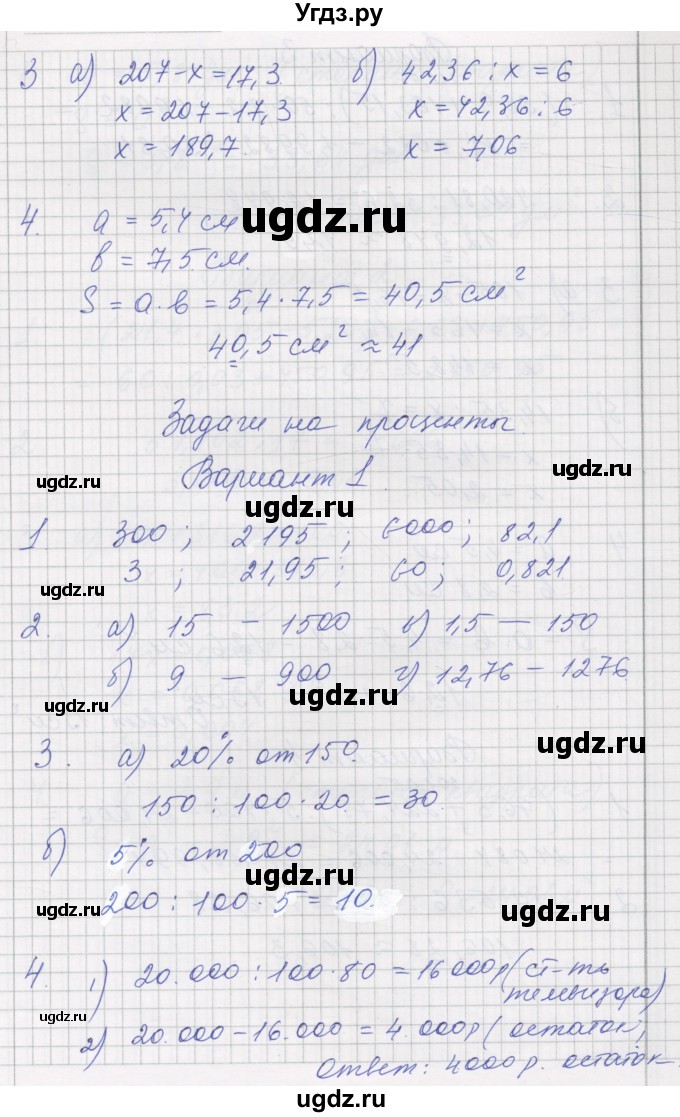 Угдз.ру
3 а) 207-x=17,3 б) 42,36 : x = 6
x = 207-17,3 x = 42,36 : 6
x = 189,7 x = 7,06
ugdz.ru
4. a = 5,4 см
в = 7,5 см.
S = a · в = 5,4 · 7,5 = 40,5 см²
40,5 см² ≈ 41
ugdz.ru
Задачи на проценты
ugdz.ru ugdz.ru
Вариант 1
ugdz.ru
1. 300 ; 2195 ; 6000 ; 82,1
3 ; 21,95 ; 60 ; 0,821
ugdz.ru
2. а) 15 — 1500 в) 1,5 — 150
б) 9 — 900 г) 12,76 — 1276
ugdz.ru
ugdz.ru
3. а) 20% от 150.
ugdz.ru
150 : 100 · 20 = 30.
ugdz.ru
б) 5% от 200
ugdz.ru
200 : 100 · 5 = 10.
ugdz.ru ugdz.ru
4. 1) 20.000 : 100 · 80 = 16000р (ст-ть
телевизора)
ugdz.ru
2) 20.000 — 16.000 = 4.000р (остаток)
Ответ: 4000 р. остаток.
ugdz.ru ugdz.ru